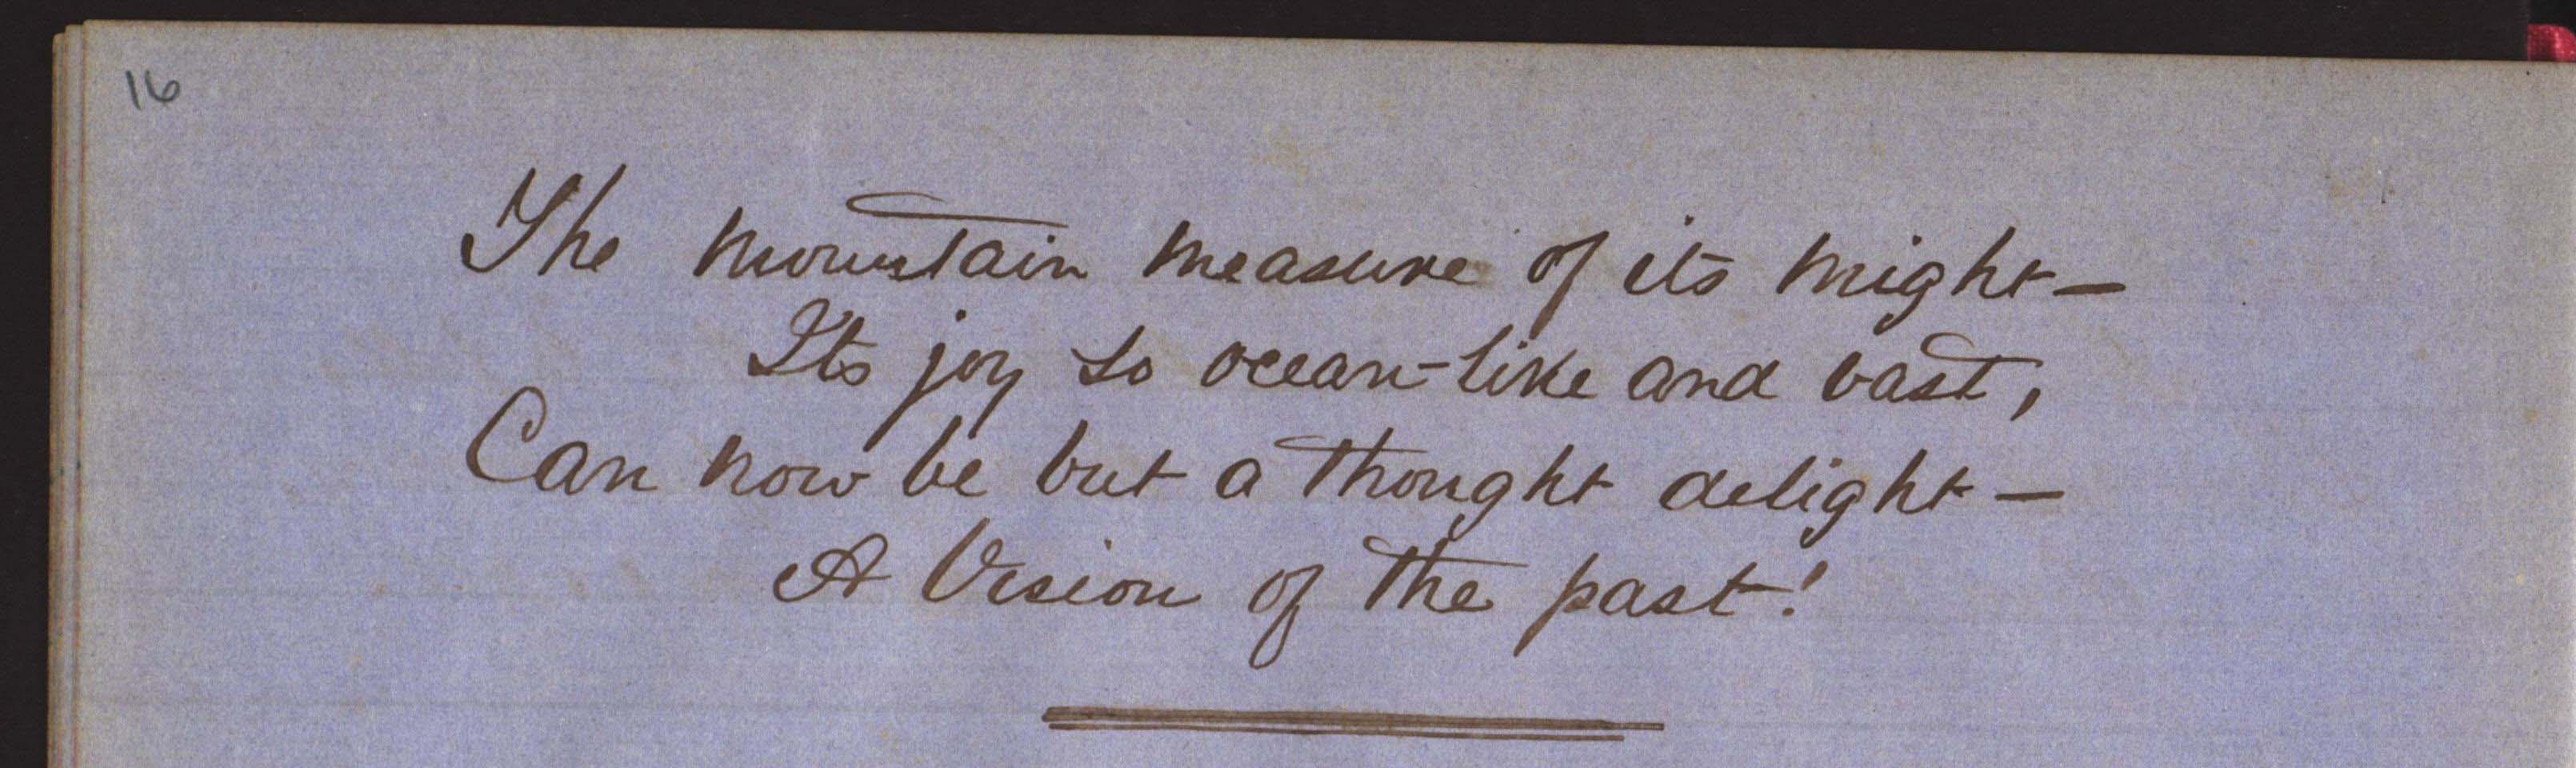 16
The mountain measure of its might—
Its joy so ocean-like and vast,
Can now be but a thought delight—
A Vision of the past!